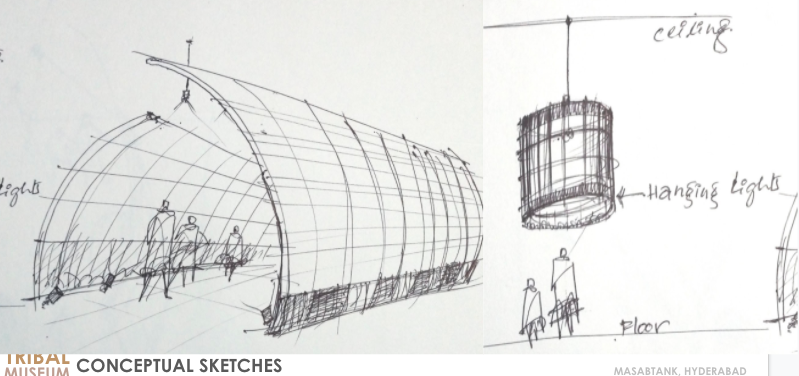 ceiling
Lights
Hanging Lights
Floor
TRIBAL
MUSEUM
CONCEPTUAL SKETCHES
MASABTANK, HYDERABAD